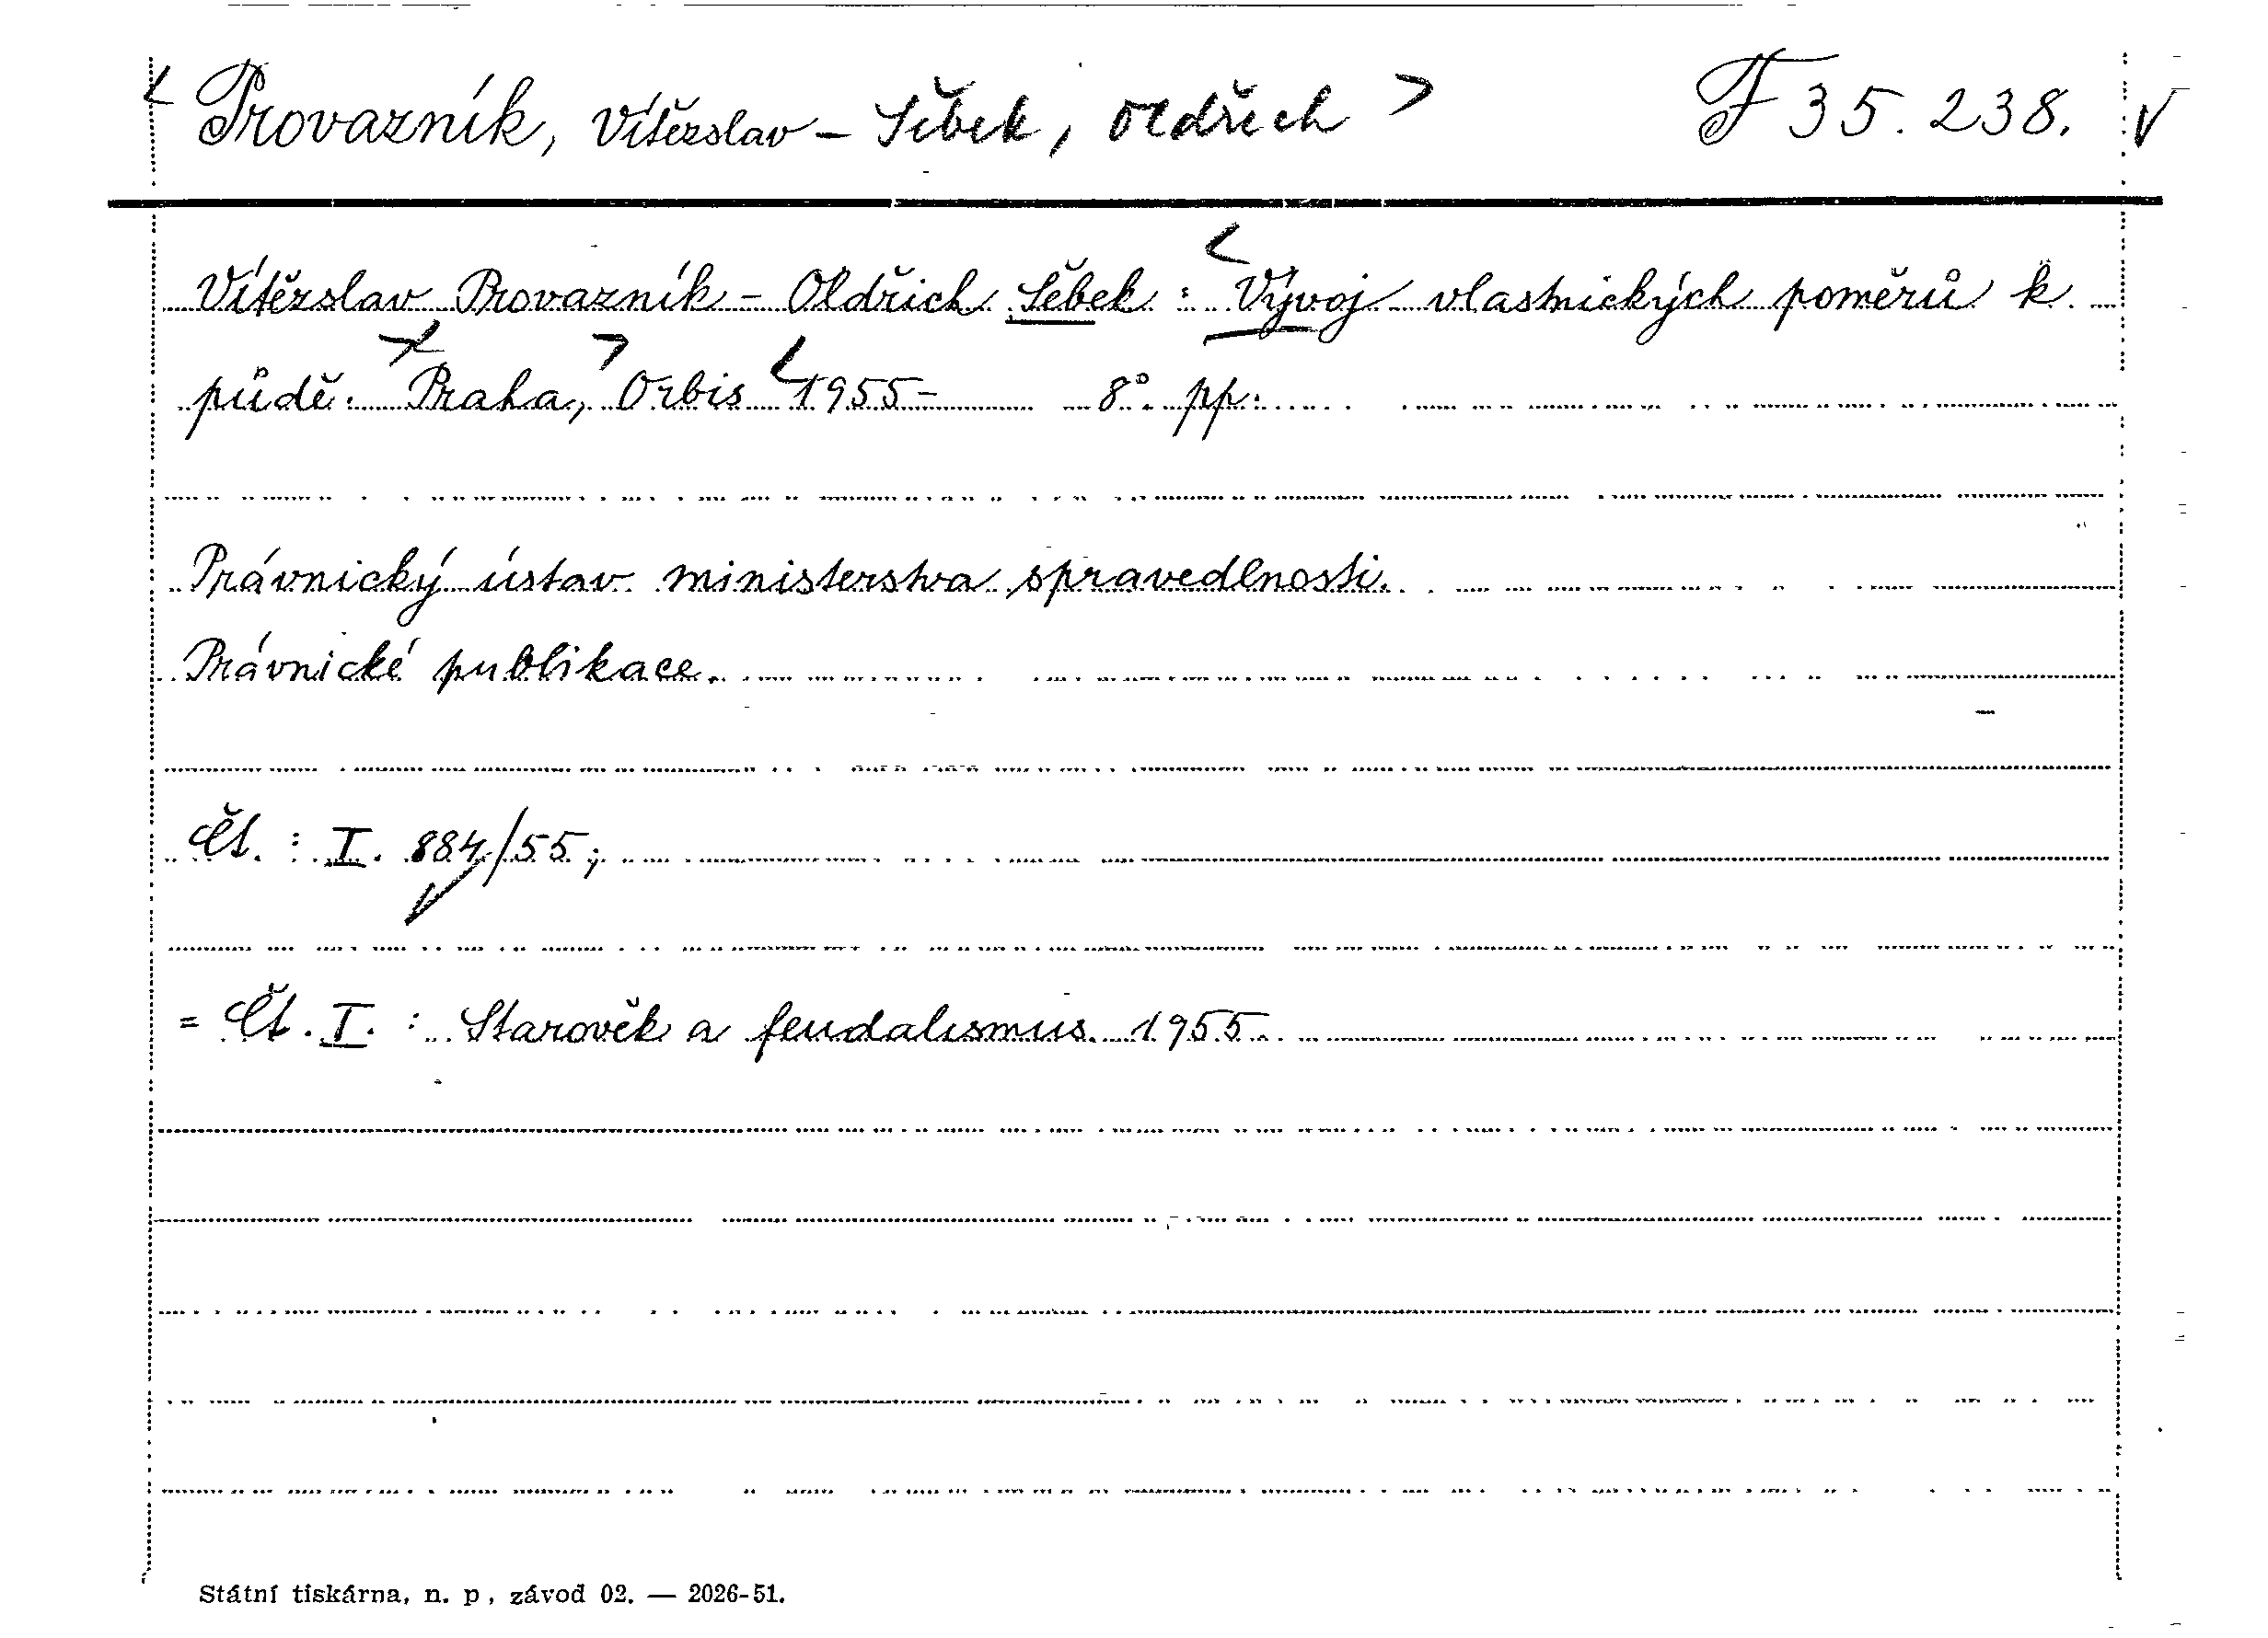 < Provazník, Vítězslav – Sěbek, Oldřich > F 35.238. √
Vítězslav Provazník – Oldřich Sěbek : < Vývoj vlastnických poměrů k
půdě. Praha, > Orbis < 1955– 8°. pp.
Právnický ústav ministerstva spravedlnosti.
Právnické publikace.
Čt. : I. 884/55;
= Čt. I. : Starověk a feudalismus. 1955.
Státní tiskárna, n. p., závod 02. — 2026-51.